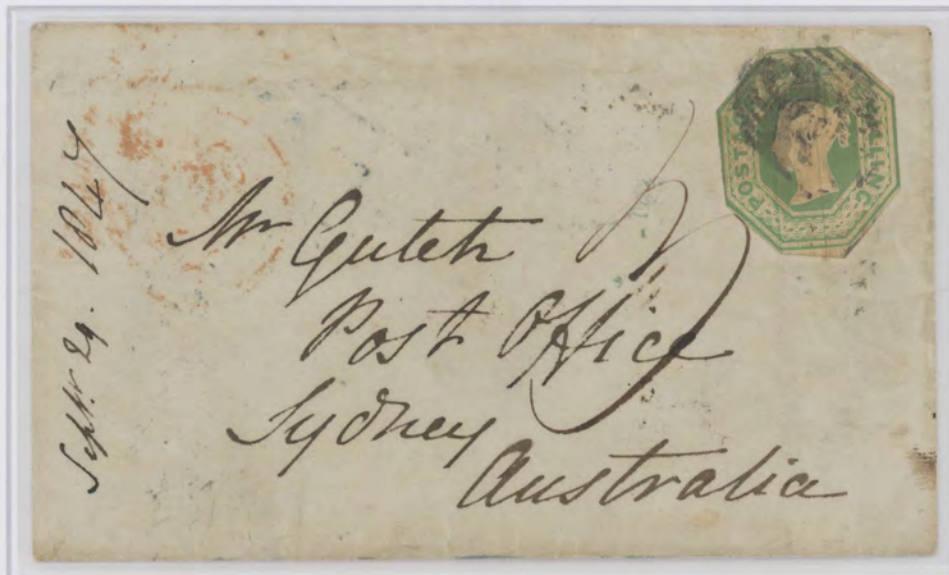 Septr. 29. 1847
Mr Gutch
Post Office
Sydney
Australia
POSTAGE